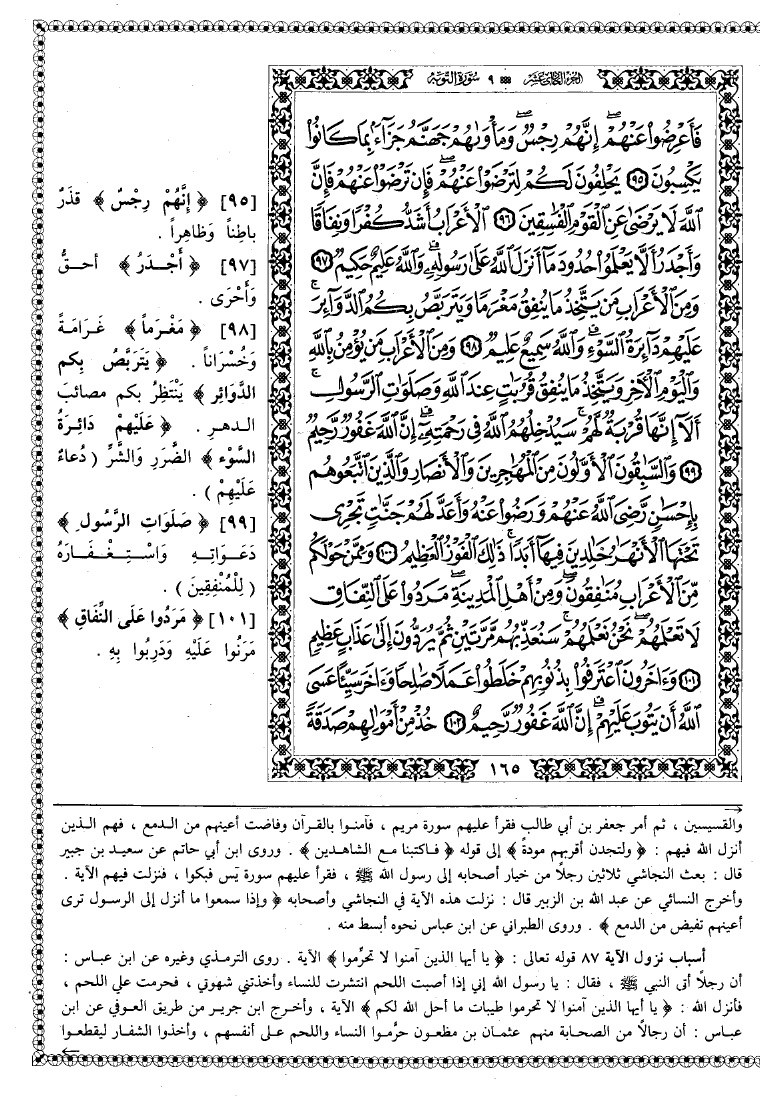 الجزء الحادي عشر ٩ سورة التوبة
فَأَعْرِضُوا۟ عَنْهُمْ ۖ إِنَّهُمْ رِجْسٌ ۖ وَمَأْوَىٰهُمْ جَهَنَّمُ جَزَآءًۢ بِمَا كَانُوا۟
يَكْسِبُونَ ٩٥ يَحْلِفُونَ لَكُمْ لِتَرْضَوْا۟ عَنْهُمْ ۖ فَإِن تَرْضَوْا۟ عَنْهُمْ فَإِنَّ
ٱللَّهَ لَا يَرْضَىٰ عَنِ ٱلْقَوْمِ ٱلْفَٰسِقِينَ ٩٦ ٱلْأَعْرَابُ أَشَدُّ كُفْرًا وَنِفَاقًا
وَأَجْدَرُ أَلَّا يَعْلَمُوا۟ حُدُودَ مَآ أَنزَلَ ٱللَّهُ عَلَىٰ رَسُولِهِۦ ۗ وَٱللَّهُ عَلِيمٌ حَكِيمٌ ٩٧
وَمِنَ ٱلْأَعْرَابِ مَن يَتَّخِذُ مَا يُنفِقُ مَغْرَمًا وَيَتَرَبَّصُ بِكُمُ ٱلدَّوَآئِرَ ۚ
عَلَيْهِمْ دَآئِرَةُ ٱلسَّوْءِ ۗ وَٱللَّهُ سَمِيعٌ عَلِيمٌ ٩٨ وَمِنَ ٱلْأَعْرَابِ مَن يُؤْمِنُ بِٱللَّهِ
وَٱلْيَوْمِ ٱلْءَاخِرِ وَيَتَّخِذُ مَا يُنفِقُ قُرُبَٰتٍ عِندَ ٱللَّهِ وَصَلَوَٰتِ ٱلرَّسُولِ ۚ
أَلَآ إِنَّهَا قُرْبَةٌ لَّهُمْ ۚ سَيُدْخِلُهُمُ ٱللَّهُ فِى رَحْمَتِهِۦٓ ۗ إِنَّ ٱللَّهَ غَفُورٌ رَّحِيمٌ
٩٩ وَٱلسَّٰبِقُونَ ٱلْأَوَّلُونَ مِنَ ٱلْمُهَٰجِرِينَ وَٱلْأَنصَارِ وَٱلَّذِينَ ٱتَّبَعُوهُم
بِإِحْسَٰنٍ رَّضِىَ ٱللَّهُ عَنْهُمْ وَرَضُوا۟ عَنْهُ وَأَعَدَّ لَهُمْ جَنَّٰتٍ تَجْرِى
تَحْتَهَا ٱلْأَنْهَٰرُ خَٰلِدِينَ فِيهَآ أَبَدًا ۚ ذَٰلِكَ ٱلْفَوْزُ ٱلْعَظِيمُ ١٠٠ وَمِمَّنْ حَوْلَكُم
مِّنَ ٱلْأَعْرَابِ مُنَٰفِقُونَ ۖ وَمِنْ أَهْلِ ٱلْمَدِينَةِ ۖ مَرَدُوا۟ عَلَى ٱلنِّفَاقِ
لَا تَعْلَمُهُمْ ۖ نَحْنُ نَعْلَمُهُمْ ۚ سَنُعَذِّبُهُم مَّرَّتَيْنِ ثُمَّ يُرَدُّونَ إِلَىٰ عَذَابٍ عَظِيمٍ
١٠١ وَءَاخَرُونَ ٱعْتَرَفُوا۟ بِذُنُوبِهِمْ خَلَطُوا۟ عَمَلًا صَٰلِحًا وَءَاخَرَ سَيِّئًا عَسَى
ٱللَّهُ أَن يَتُوبَ عَلَيْهِمْ ۚ إِنَّ ٱللَّهَ غَفُورٌ رَّحِيمٌ ١٠٢ خُذْ مِنْ أَمْوَٰلِهِمْ صَدَقَةً
١٦٥
[٩٥] ﴿ إِنَّهُمْ رِجْسٌ ﴾ قَذَرٌ
باطِناً وَظَاهِراً .
[٩٧] ﴿ أَجْـدَرُ ﴾ أحـقُّ
وَأَحْرَى .
[٩٨] ﴿ مَغْـرَماً ﴾ غَـرَامَـةً
وَخُسْرَاناً . ﴿ يَتَرَبَّصُ بِكم
الدَّوَائِر ﴾ يَنْتَظِرُ بكم مصائبَ
الـدهـرِ . ﴿ عَلَيْهِمْ دَائِـرَةُ
السَّوْء ﴾ الضَّرَرِ وَالشَّرِّ ( دُعاءٌ
عَلَيْهِمْ ) .
[٩٩] ﴿ صَلَوَاتِ الرَّسُولِ ﴾
دَعَـوَاتِـهِ وَاسْـتِـغْـفَـارَهُ
( لِلْمُنْفِقِينَ ) .
[١٠١] ﴿ مَرَدُوا عَلَى النِّفَاقِ ﴾
مَرَنُوا عَلَيْهِ وَدَرِبُوا بِهِ .
والقسيسين ، ثم أمر جعفر بن أبي طالب فقرأ عليهم سورة مريم ، فآمنـوا بالقـرآن وفاضت أعينهم من الـدمع ، فهم الـذين
أنزل الله فيهم : ﴿ ولتجدن أقربهم مودة ﴾ إلى قوله ﴿ فـاكتبنا مـع الشاهـدين ﴾ . وروى ابن أبي حاتم عن سعيـد بن جبير
قال : بعث النجاشي ثلاثين رجلًا من خيار أصحابه إلى رسول الله ﷺ ، فقرأ عليهم سورة يس فبكوا ، فنزلت فيهم الآية .
وأخرج النسائي عن عبد الله بن الزبير قال : نزلت هذه الآية في النجاشي وأصحابه ﴿ وإذا سمعوا ما أنزل إلى الرسـول ترى
أعينهم تفيض من الدمع ﴾ . وروى الطبراني عن ابن عباس نحوه أبسط منه .
أسباب نزول الآية ٨٧ قوله تعالى : ﴿ يا أيها الذين آمنوا لا تحرِّموا ﴾ الآية . روى الترمـذي وغيره عن ابن عبـاس :
أن رجلًا أتى النبي ﷺ ، فقال : يا رسول الله إني إذا أصبت اللحم انتشرت للنساء وأخذتني شهوتي ، فحرمت علي اللحم ،
فأنزل الله : ﴿ يا أيها الذين آمنوا لا تحرموا طيبات ما أحل الله لكم ﴾ الآية ، وأخرج ابن جريـر من طريق العـوفي عن ابن
عباس : أن رجالًا من الصحـابة منهم عثمـان بن مظعـون حرَّمـوا النساء واللحم عـلى أنفسهم ، وأخذوا الشفـار ليقطعـوا